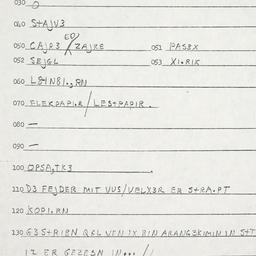 030 O
040 S+AJV3
050 CAJR3 / ZAJKE 051 PASEX
052 SEJGL 053 XI.RIK
060 L84N81.,RN
070 ELEKDAPI.R/LESTPAPIR.
080 —
090 —
100 OPSA,TK3
110 D3 FEJDER MIT VUS/VELX3R ER S+RA.PT
120 KOPI.RN
130 G3S+RIBN QRL VEN IX BIN ARANG3KIMIN IN S+T
IZ ER GEZESN IN... //